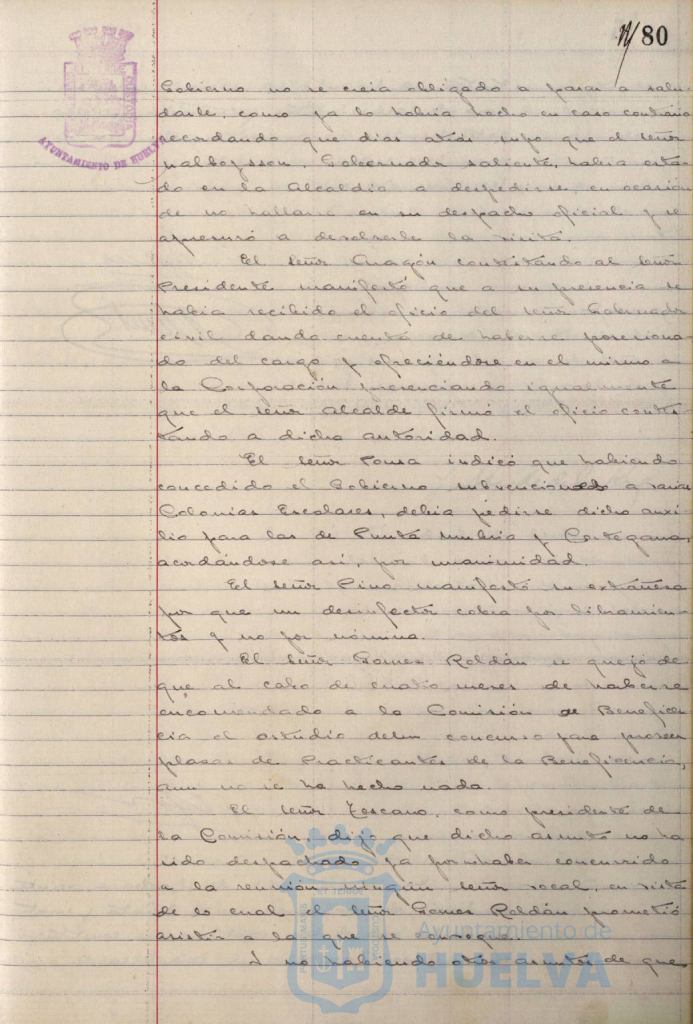 80
AYUNTAMIENTO DE HUELVA
Gobierno no se creia obligado a pasar a salu-
darle, como ya lo habia hecho en caso contrario
recordando que dias atrás supo que el señor
Gobernador saliente, habia esta-
do en la Alcaldia a despedirse, en ocasión
de no hallarse en su despacho oficial y se
apresuró a devolverle la visita.
El señor Aragón contestando al señor
Presidente manifestó que a su presencia se
habia recibido el oficio del señor Gobernador
civil dando cuenta de haberse posesiona-
do del cargo y ofreciéndose en el mismo a
la Corporación, presenciando igualmente
que el señor Alcalde firmó el oficio contes-
tando a dicha autoridad.
El señor Ponsa indicó que habiendo
concedido el Gobierno subvenciones a varias
Colonias Escolares, debia pedirse dicho auxi-
lio para las de Punta Umbria y Cortegana,
acordándose así, por unanimidad.
El señor Pino manifestó su extrañeza
por que un desinfector cobra por libramien-
tos y no por nómina.
El señor Gomez Roldán se quejó de
que al cabo de cuatro meses de haberse
encomendado a la Comisión de Beneficen-
cia el estudio de un concurso para proveer
plazas de Practicantes de la Beneficencia,
aun no se ha hecho nada.
El señor Toscano, como presidente de
la Comisión, dijo que dicho asunto no ha
sido despachado ya por no haber concurrido
a la reunión ningún señor vocal, en vista
de lo cual el señor Gomez Roldán prometió
asistir a la que se convoque.
Y no habiendo otros asuntos de que
Ayuntamiento de
HUELVA